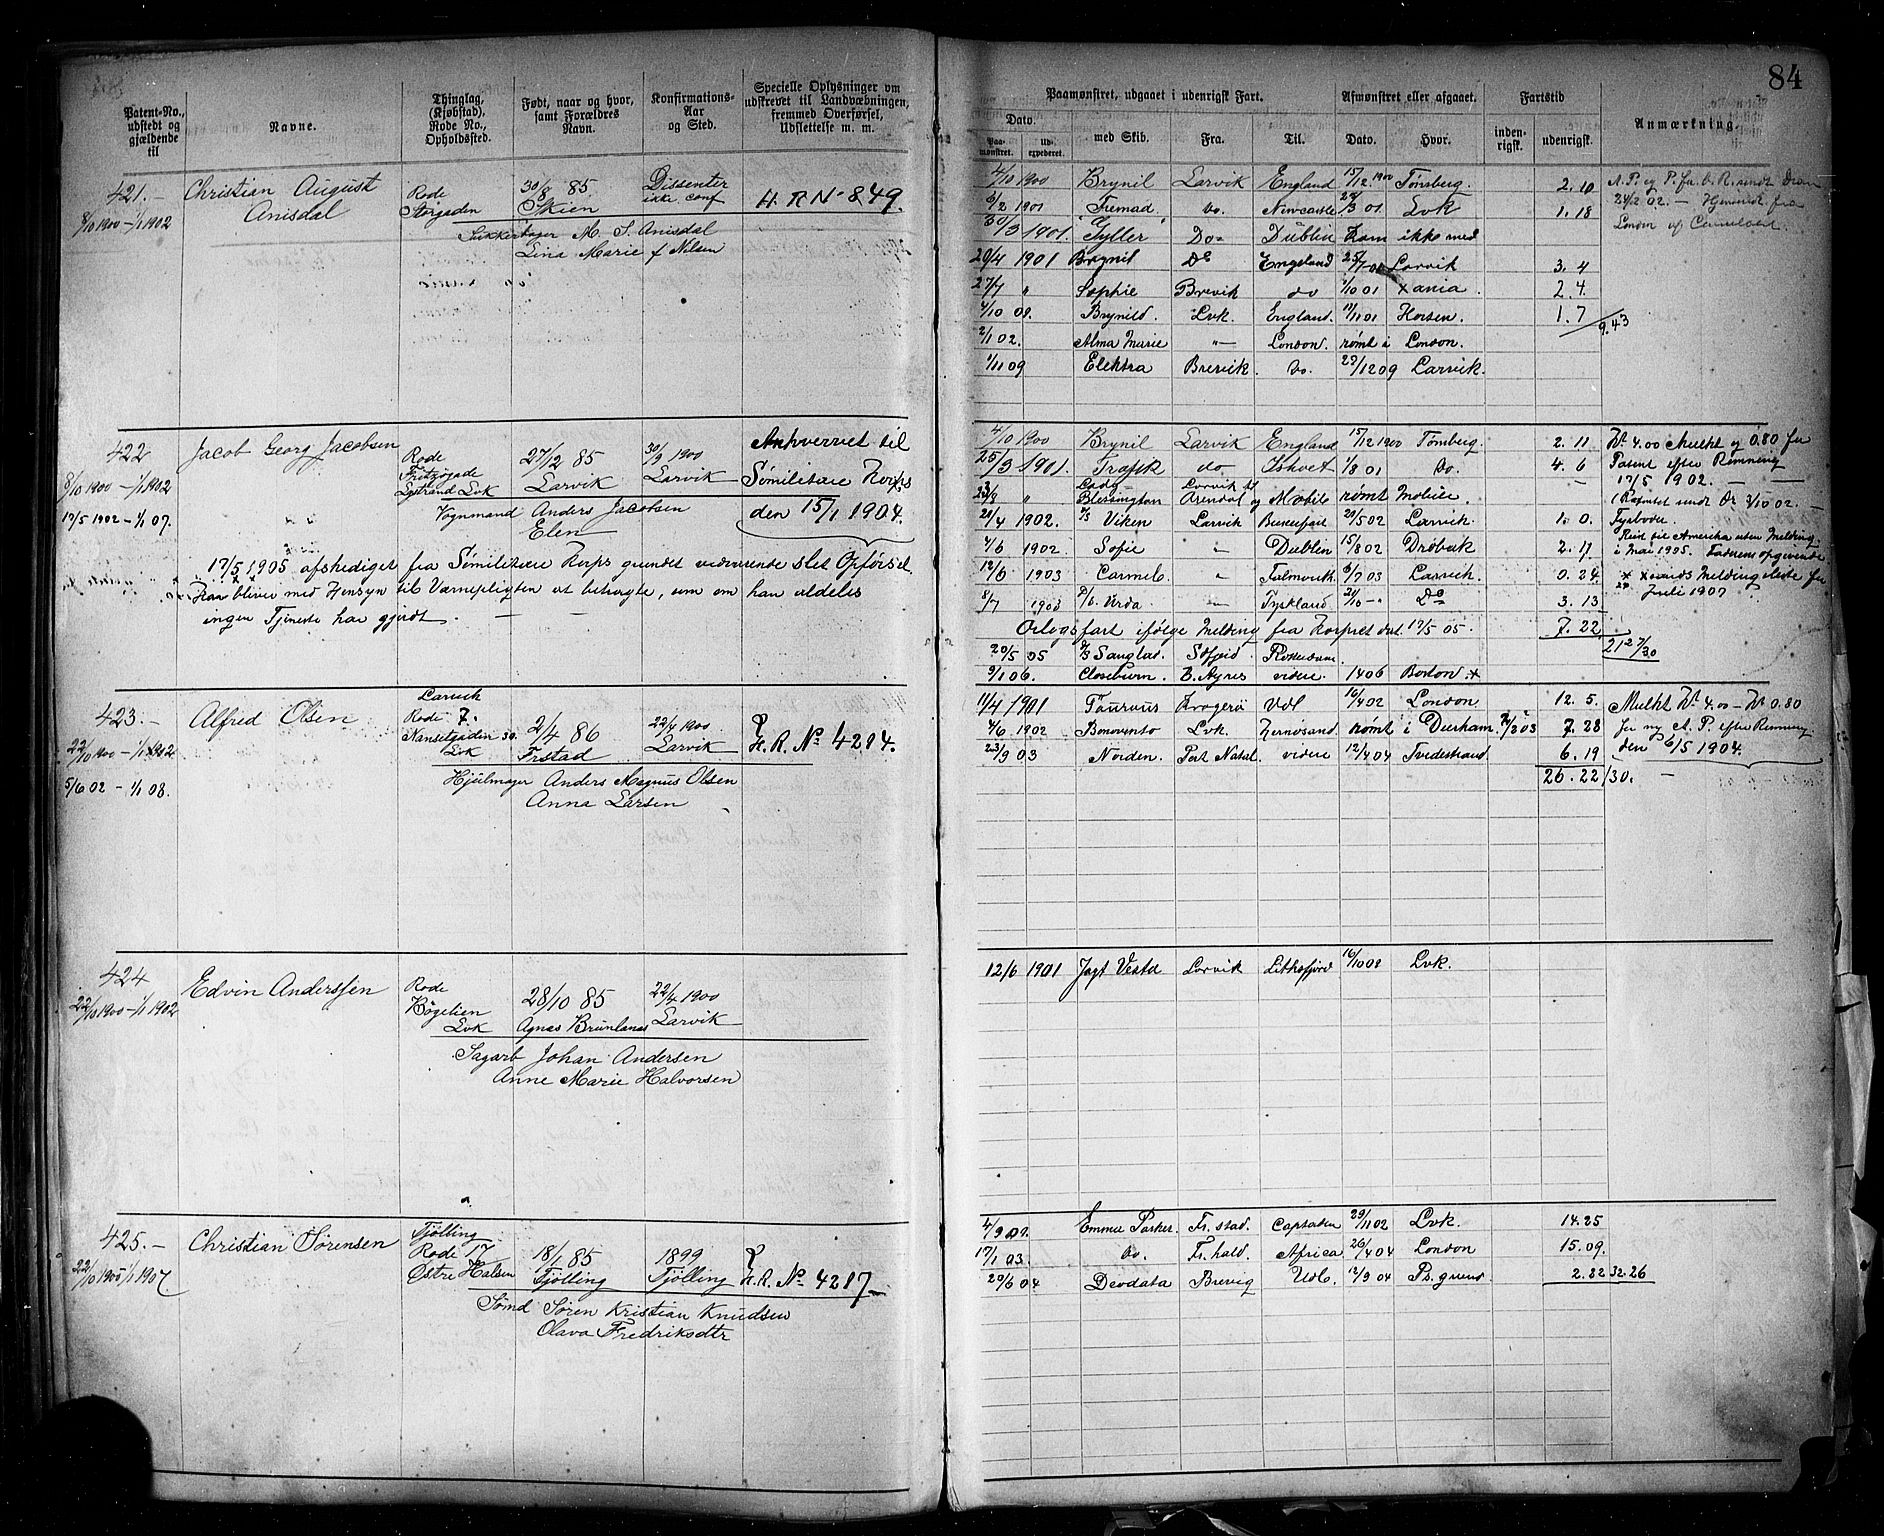 84
Patent-No., udstedt og gjældende til
Navne.
Thinglag, (Kjøbstad), Rode No., Opholdssted.
Født, naar og hvor, samt Forældres Navn.
Konfirmations-Aar og Sted.
Specielle Oplysninger om udskrevet til Landværningen, fremmed Overførsel, Udslettelse m. m.
Paamønstret, udgaaet i udenrigsk Fart.
Afmønstret eller afgaaet.
Fartstid
Anmærkning.
Dato.
Paamønstret.
Udexpederet.
med Skib.
Fra.
Til.
Dato.
Hvor.
indenrigsk.
udenrigsk.
421.
8/10 1900 - 1/1 1902
Christian August
Anisdal
Rode
Storgaden
30/8 85
Skien
Dissenter
ikke conf
H. R No 849.
M. S. Anisdal
Lina Marie f Nilsen
4/10 1900 Brynil Larvik England 15/12 1900 Tønsberg. 2. 10
9/2 1901 Fremad do. Newcastle 01 Lvk 1. 18
30/3 1901. Gyller Do Dublin kom ikke med
20/4 1901 Brynil Do England 25/7 01 Larvik 3. 4
27/7 " Sophie Brevik do 1/10 01 Xania. 2 4.
4/10 Brynild. Lvk. England. 17/11 01 Horsen. 1. 7
9.43
2/1 02. Alma Marie " London. rømt i London.
1/11 09 Elektra Brevik. do. 23/12 09 Larvik.
422
8/10 1900 - 1/1 1902
17/5 1902 - 1/1 07.
Jacob Georg Jacobsen
Rode
Lvk
27/12 85
Larvik
30/9 1900
Larvik
Vognmand Anders Jacobsen
Elen
til
Sømilitære Korps
den 15/1 1904.
17/5 1905 afskediget fra Sømilitære Korps grundet vedvarende slet Opførsel.
bliver med Hensyn til Værnepligten at betragte, som om han aldeles
ingen Tjeneste har gjort.
4/10 1900 Brynil Larvik England 15/12 1900 Tønsberg. 2. 11
25/3 1901. Trafik do Ishvet 1/8 01 do. 4. 6
Lady Blessington Arendal og Mobile rømt Mobile.
1902. Viken Larvik 20/5 02 Larvik. 1. 0.
4/6 1902. Sofie " Dublin 15/8 02 Drøbak 2. 17
12/6 1903 Carmel. " Falmouth 03 Larvik. 0. 24.
8/7 1903 Tyskland Do 3. 13
Orlogsfart ifølge Melding fra Korpset dat. 17/5 05. 7. 22
21 27/30
20/5 05 Sanglad.
9/1 06. Closeburn. B. Ayres videre 06 Boston.
Kr. 4.00 Mulkt og 0.80 for
Patent efter Rømning
17/5 1902.
Reist til Amerika uten Melding
i Mai 1905.
Juli 1907
423.
22/10 1900 - 1/1 1902
5/6 02 - 1/1 08.
Alfred Olsen
Larvik
Rode 7.
Nansetgaden 30.
Lvk
2/4 86
Frstad
22/4 1900
Larvik
H. R. No 4294.
Hjulmager Anders Magnus Olsen
Anna Larsen
11/4 1901 Taurus Kragerø Udl 16/4 02 London 12. 5.
4/6 1902 Lvk. rømt i Durham. 03 7. 28
23/9 03 Norden. Port Natal. videre 12/4 04 Tvedestrand. 6. 19
26. 22/30.
Mulkt Kr. 4.00 - Kr. 0.80
for ny A. P. efter Rømning
den 6/5 1904.
424
22/10 1900 - 1/1 1902
Edvin Anderssen
Rode
Bøgelien
Lvk
28/10 85
Agnas Brunlanas
22/4 1900
Larvik
Sagarb Johan Andersen
Anne Marie Halvorsen
12/6 1901 Jagt Vesta Larvik Lithsfjord Lvk.
425.
22/10 1900 1/1 1907
Christian Sørensen
Tjølling
Rode 17
Østre Halsen
18/1 85
Tjølling
1899
Tjølling
H. R. No 4217
Sømd Søren Kristian Knudsen
Olava Fredriksdtr
4/9 Emma Parker Fr. stad. 29/11 02 Lvk. 14. 25
17/1 03. do. Fr. hald. Africa 26/4 04 London 15. 09.
20/6 04 Deodata Brevig Udl. 12/9 04 2. 22 32. 26